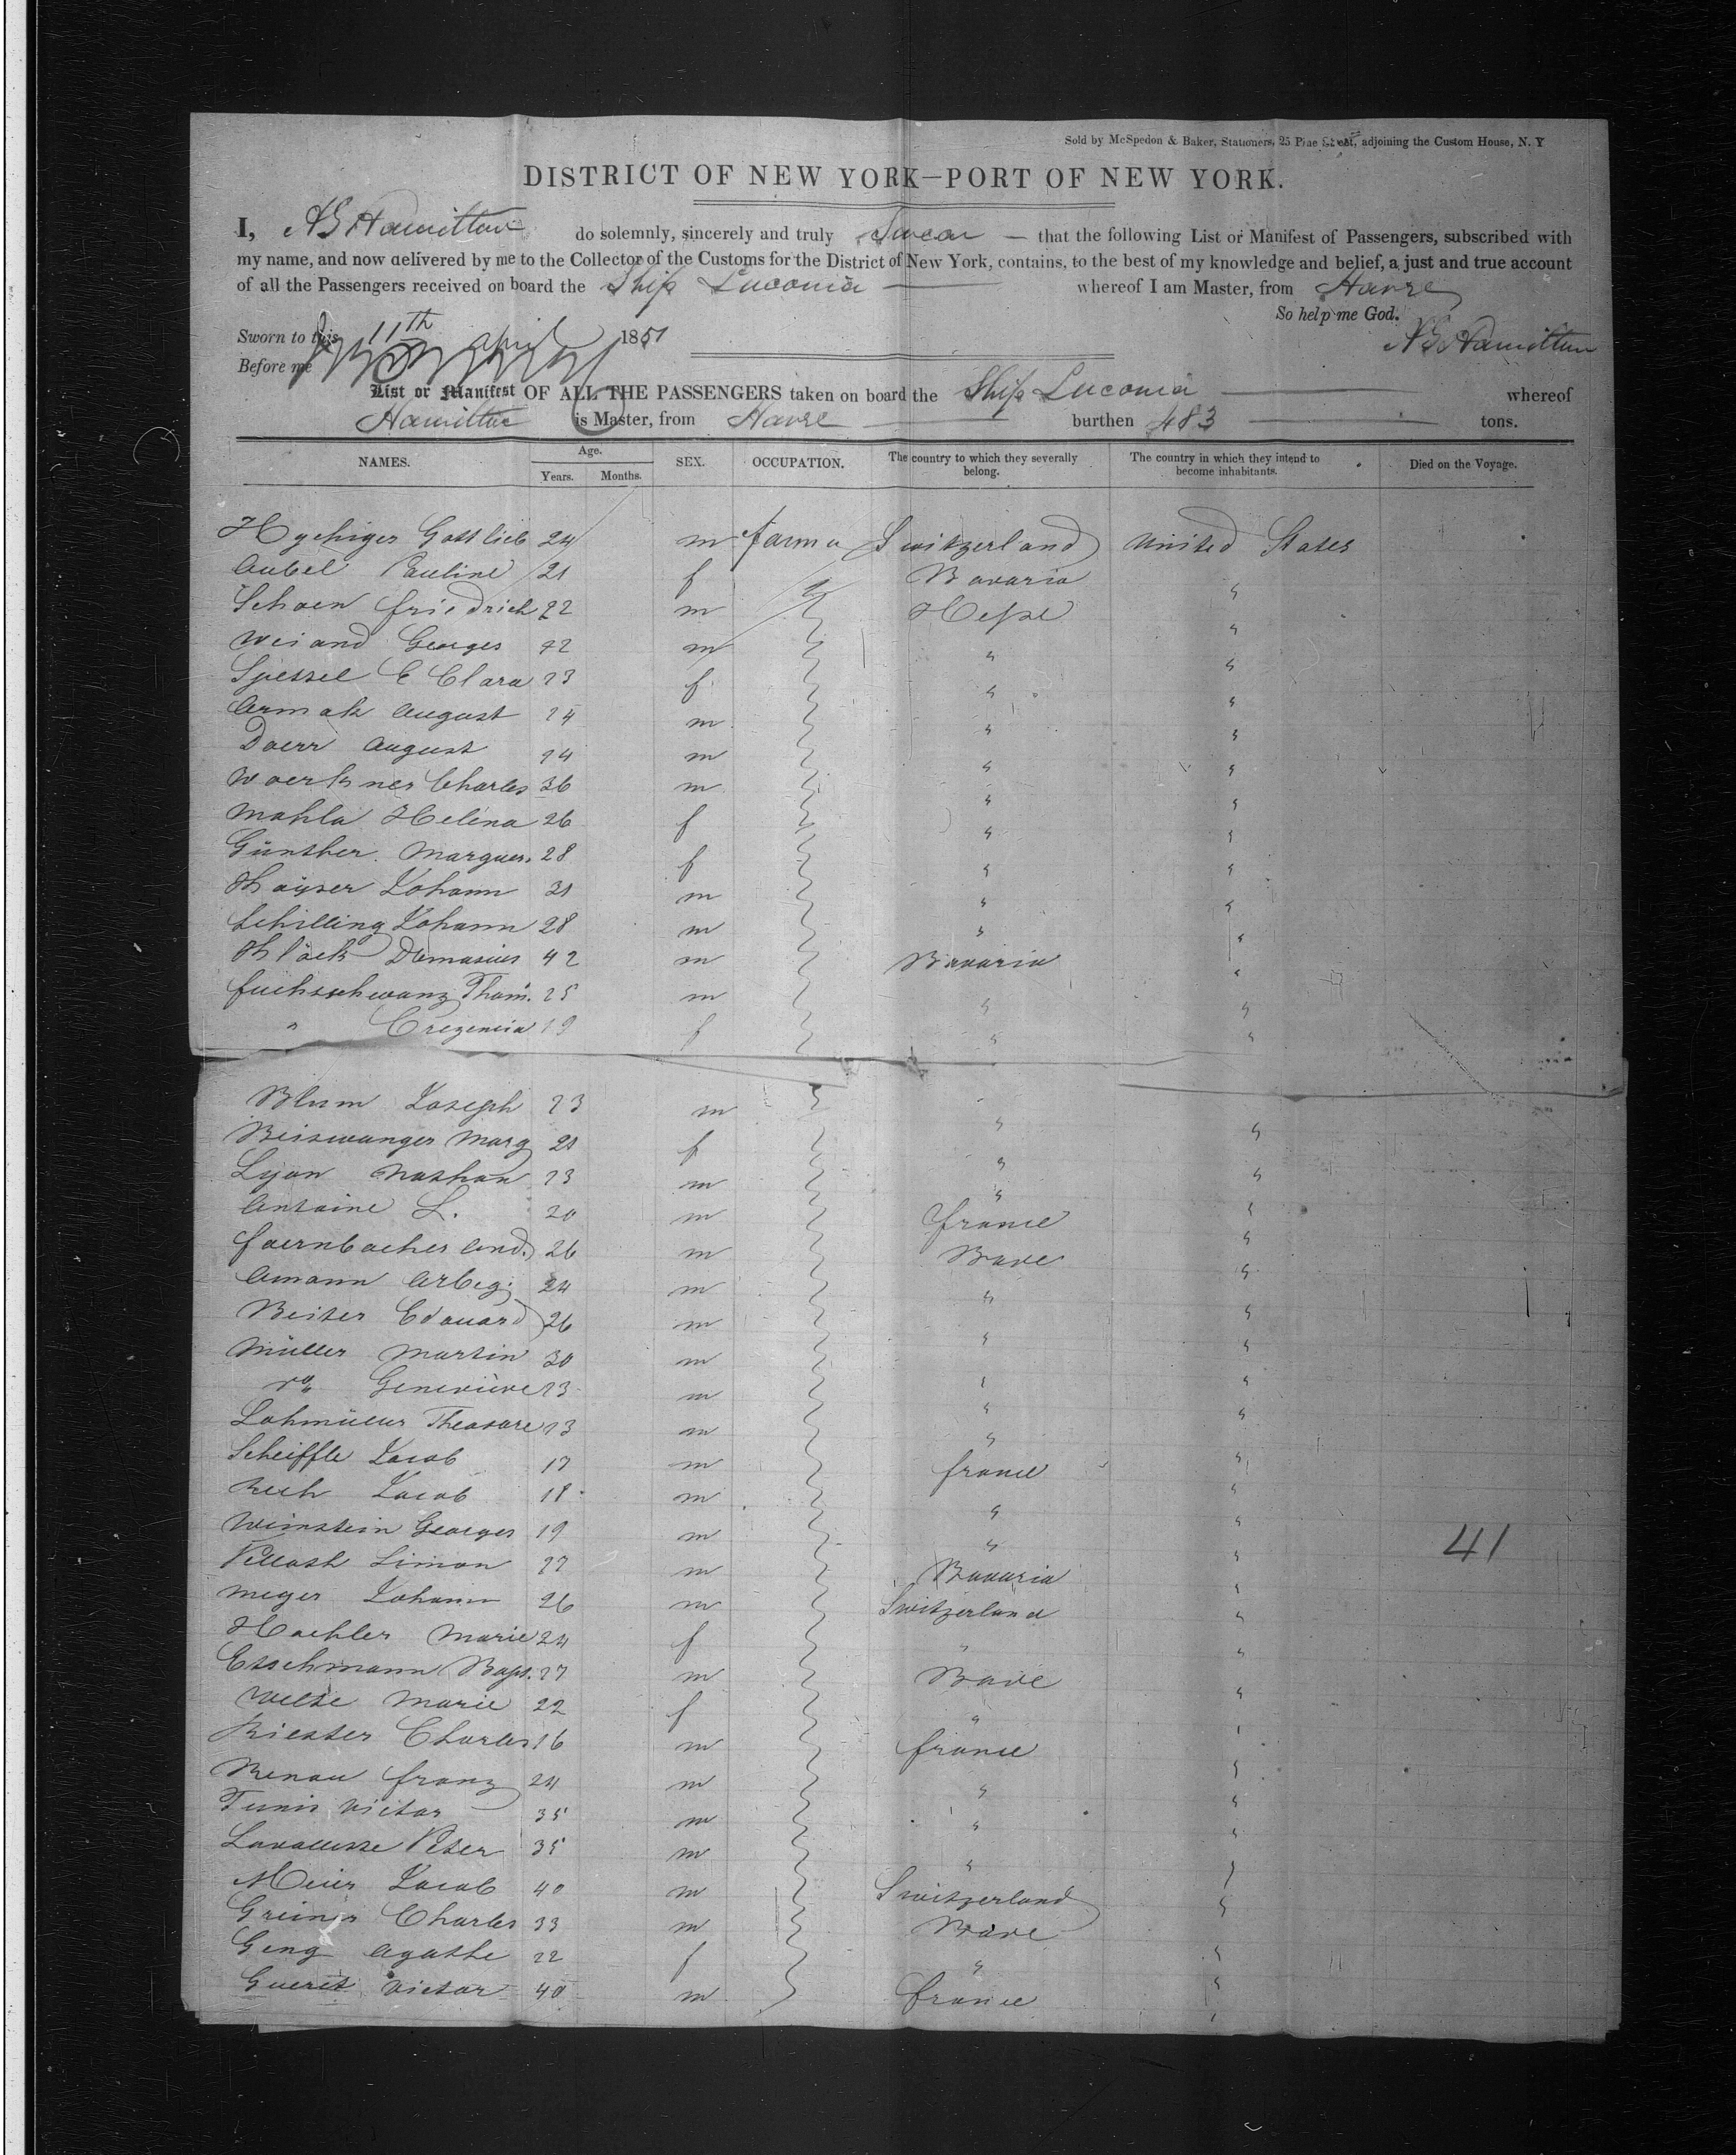 Sold by McSpedon & Baker, Stationers, 25 Pine Street, adjoining the Custom House, N. Y
DISTRICT OF NEW YORK—PORT OF NEW YORK.
I, AB Hamilton do solemnly, sincerely and truly Swear — that the following List or Manifest of Passengers, subscribed with
my name, and now delivered by me to the Collector of the Customs for the District of New York, contains, to the best of my knowledge and belief, a just and true account
of all the Passengers received on board the Ship Luconia whereof I am Master, from Havre
So help me God.
Sworn to this 11th April 1851 AB Hamilton
Before me
List or Manifest OF ALL THE PASSENGERS taken on board the Ship Luconia whereof
Hamilton is Master, from Havre burthen 483 tons.
NAMES. Age. Years. Months. SEX. OCCUPATION. The country to which they severally belong. The country in which they intend to become inhabitants. Died on the Voyage.
Gottlieb 24 m farmer Switzerland United States
Aubel Pauline 21 f " Bavaria "
Schoen friedrich 22 m Hesse "
Weiand Georges 22 m " "
Spessel E Clara 23 f " "
Armak August 24 m " "
Doerr August 24 m " "
Woerkner Charles 36 m " "
Mahla Helena 26 f " "
Günther Marguer. 28 f " "
Kayser Johann 31 m " "
Schilling Johann 28 m " "
Klöck Damasius 42 m Bavaria "
fuchsschwanz Thom. 25 m " "
" Cregencia 19 f " "
Blum Joseph 23 m " "
Beiswanger Marg 21 f " "
Lyon Nathan 23 m " "
Antoine L. 20 m france "
foernbacher And. 26 m Bade "
Amann Arbog. 24 m " "
Beiter Edouard 26 m " "
Müller Martin 30 m " "
do Geneviève 23 m " "
Lohmüller Theodore 23 m " "
Scheiffle Jacob 17 m france "
Ruch Jacob 18 m " "
Weinstein Georges 19 m " " 41
Vellash Simon 27 m Bavaria "
Meyer Johann 26 m Switzerland "
Haehler Marie 24 f " "
Esschmann Bapt. 27 m Bade "
Welte Marie 22 f " "
Riester Charles 16 m france "
Renau franz 24 m " "
Tunis Victor 35 m " "
Peter 35 m " "
Meier Jacob 40 m Switzerland "
Greiner Charles 33 m Bade "
Geng Agathe 22 f " "
Gueret Victor 40 m france "